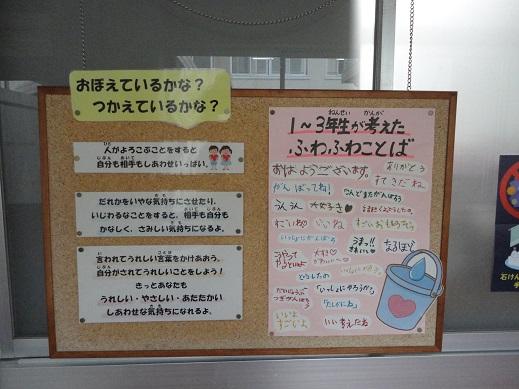 おぼえているかな？
つかえているかな？
人がよろこぶことをすると
自分も相手もしあわせいっぱい。
だれかをいやな気持ちにさせたり、
いじわるなことをすると、相手も自分も
かなしく、さみしい気持ちになるよ。
言われてうれしい言葉をかけあおう。
自分がされてうれしいことをしよう！
きっとあなたも
うれしい・やさしい・あたたかい
しあわせな気持ちになれるよ。
1～3年生が考えた
ふわふわことば
おはようございます。
ありがとう
がんばってね！
すてきだね
うんうん
大好き
すごいね
いいね
いっしょにがんばろ
うまっ!!
なるほど
どうしたの
「いっしょにやろうか？」
「たしかにね」
いいよ
すごいよ
いい考えだね
石けん